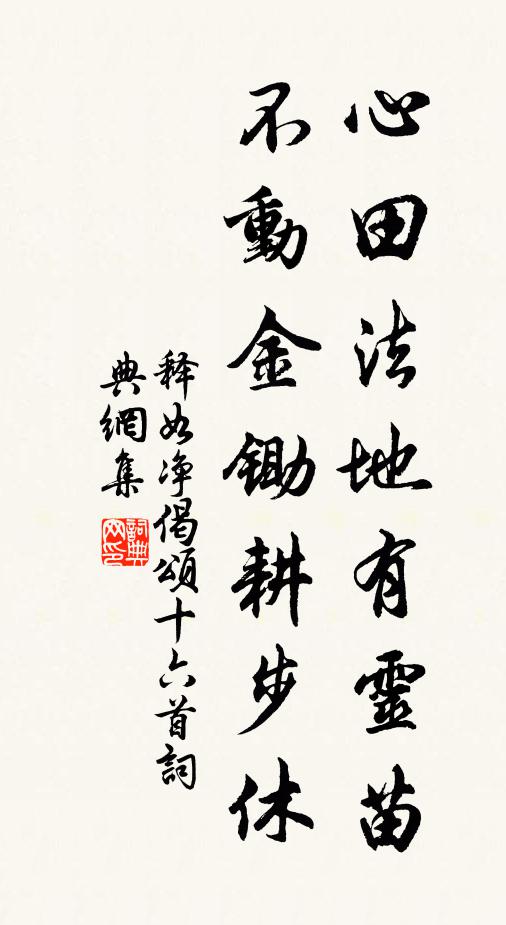 心田法地有靈苗
不動金鋤耕步休
释如净偈頌十六首詞
典網集
詞典网印